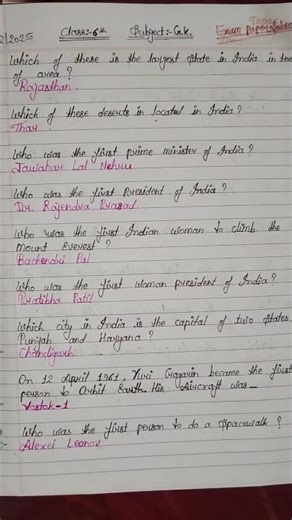 2/2025 Class:-6th Subject:- G.K. Exam
Which of these is the largest state in India in
of area?
Rajasthan.
Which of these deserts in located in India?
Thar
Who was the first prime minister of India?
Jawahar Lal Nehru
Who was the first President of India?
Dr. Rajendra Prasad
Who was the first Indian woman to climb the
Mount Everest?
Bachendri Pal
Who was the first woman president of India?
Pratibha Patil
Which city in India is the capital of two states
Punjab and Haryana?
Chandigarh
On 12 April 1961, Yuri Gagarin became the first
person to Orbit Earth. His Aircraft was _
Vostok-1
Who was the first person to do a spacewalk?
Alexei Leonov